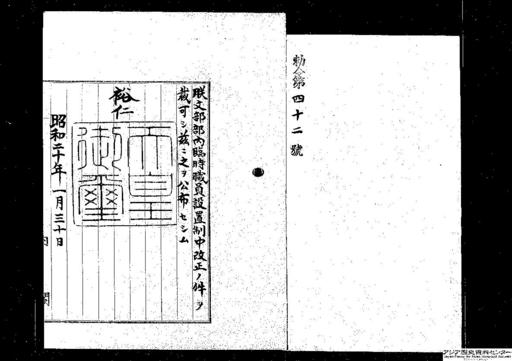 勅令第四十二號
朕文部部內臨時職員設置制中改正ノ件ヲ
裁可シ茲ニ之ヲ公布セシム
裕仁
天皇
御璽
昭和二十年一月三十日
內閣
アジア歴史資料センター